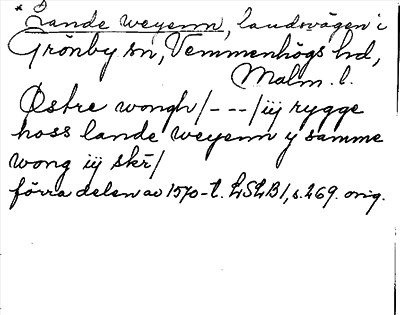 * Lande weyenn, landsvägen i
Grönby sn, Vemmenhögs hd,
Malm. l.
Østre wongh/---/iij rygge
hoss lande weyenn y samme
wong iij skr̄/
förra delen av 1570-t. LSLB1, s. 269. orig.